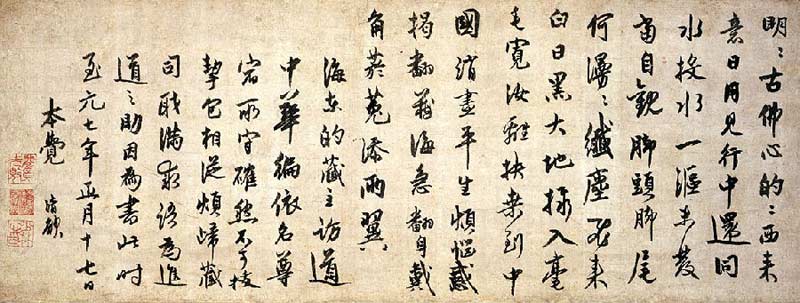 明〻古佛心的〻西來
意日月見行中還同
水投水一漚未發
當自觀脚頭脚尾
何漫〻纖塵不來
白日黑大地撮入毫
毛寬汝離扶桒到中
國消盡平生煩惱惑
揭翻教海急翻身戴
角菸菟添兩翼
海東的藏主訪道
中華徧依名尊
宿所守確然不可拔
挈包相從煩歸藏
司職滿求語為進
道之助因為書此時
至元七年正月十七日
本覺 清欲